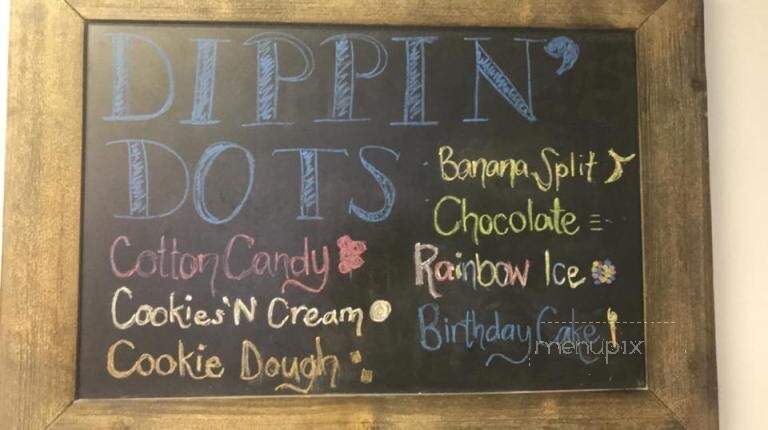 DIPPIN'
DOTS
Cotton Candy
Cookies 'N Cream
Cookie Dough
Banana Split
Chocolate
Rainbow Ice
Birthday Cake
menupix